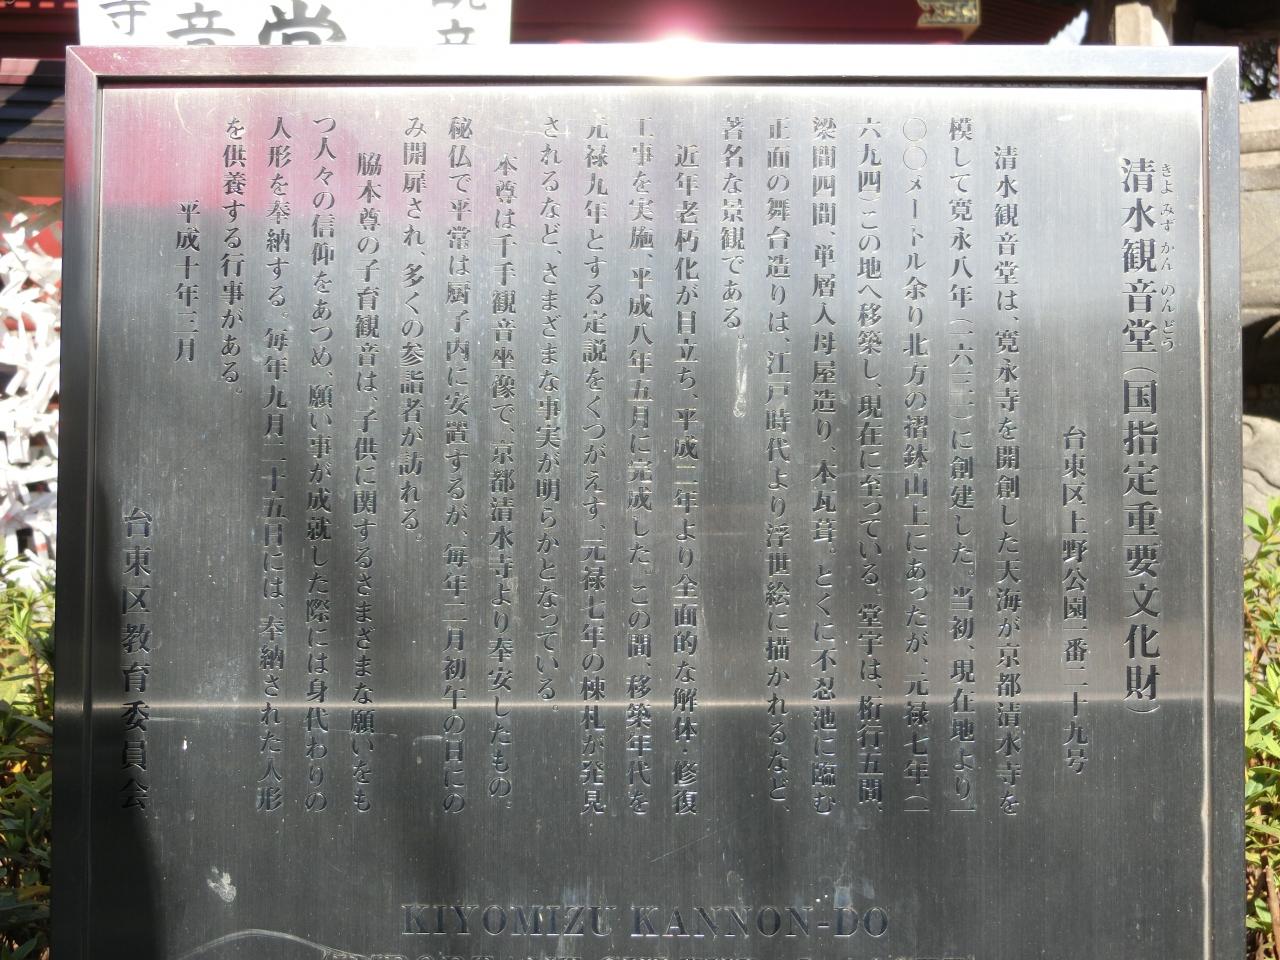 寺
音
堂
音
清水観音堂(国指定重要文化財)
きよみずかんのんどう
台東区上野公園一番二十九号
清水観音堂は、寛永寺を開創した天海が京都清水寺を
模して寛永八年(一六三一)に創建した。当初、現在地より一
〇〇メートル余り北方の摺鉢山上にあったが、元禄七年(一
六九四)この地へ移築し、現在に至っている。堂宇は、桁行五間、
梁間四間、単層入母屋造り、本瓦葺。とくに不忍池に臨む
正面の舞台造りは、江戸時代より浮世絵に描かれるなど、
著名な景観である。
近年老朽化が目立ち、平成二年より全面的な解体・修復
工事を実施、平成八年五月に完成した。この間、移築年代を
元禄九年とする定説をくつがえす、元禄七年の棟札が発見
されるなど、さまざまな事実が明らかとなっている。
本尊は千手観音坐像で、京都清水寺より奉安したもの。
秘仏で平常は厨子内に安置するが、毎年二月初午の日にの
み開扉され、多くの参詣者が訪れる。
脇本尊の子育観音は、子供に関するさまざまな願いをも
つ人々の信仰をあつめ、願い事が成就した際には身代わりの
人形を奉納する。毎年九月二十五日には、奉納された人形
を供養する行事がある。
平成十年三月
台東区教育委員会
KIYOMIZU KANNON-DO